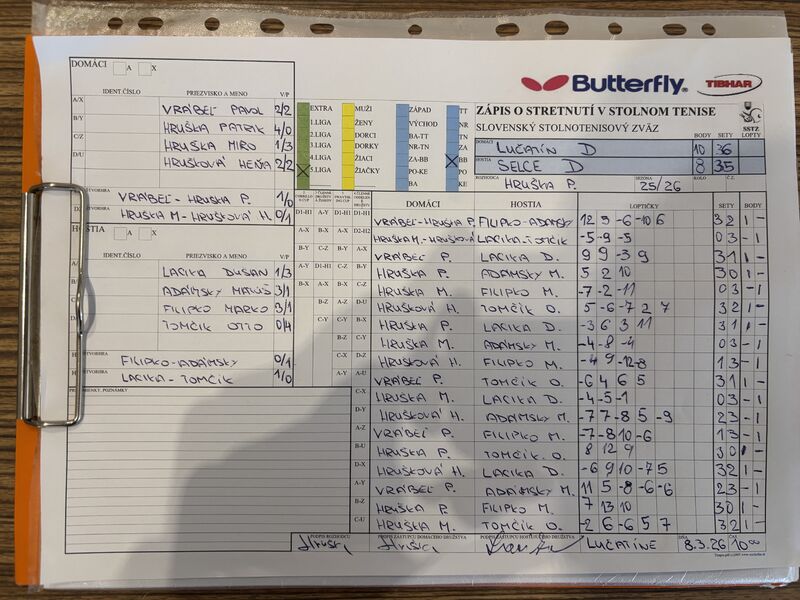 DOMÁCI A X
IDENT.ČÍSLO PRIEZVISKO A MENO V/P
A/X VRÁBEĽ PAVOL 2/2
B/Y HRUŠKA PATRIK 4/0
C/Z HRUŠKA MIRO 1/3
D/U HRUŠKOVÁ HENA 2/2
VRÁBEĽ-HRUŠKA P. 1/0
HRUŠKA M-HRUŠKOVÁ H. 0/1
HOSTIA A X
IDENT.ČÍSLO PRIEZVISKO A MENO V/P
LACIKA DUŠAN 1/3
ADÁMSKY MATÚŠ 3/1
FILIPKO MARKO 3/1
TOMČÍK OTTO 0/4
FILIPKO-ADÁMSKY 0/1
LACIKA-TOMČÍK 1/0
POZNÁMKY
EXTRA
1.LIGA
2.LIGA
3.LIGA
4.LIGA
5.LIGA
MUŽI
ŽENY
DORCI
DORKY
ŽIACI
ŽIAČKY
ZÁPAD
VÝCHOD
BA-TT
NR-TN
ZA-BB
PO-KE
BA
TT
NR
TN
ZA
BB
PO
KE
Butterfly
TIBHAR
ZÁPIS O STRETNUTÍ V STOLNOM TENISE
SLOVENSKÝ STOLNOTENISOVÝ ZVÄZ
SSTZ
BODY SETY LOPTY
DOMÁCI LUČATÍN D 10 36
HOSTIA SELCE D 8 35
ROZHODCA HRUŠKA P. SEZÓNA 25/26 KOLO Č.Z.
DOMÁCI HOSTIA LOPTIČKY SETY BODY
VRÁBEĽ-HRUŠKA P. FILIPKO-ADÁMSKY 12 9 -6 -10 6 3 2 1 -
HRUŠKA M.-HRUŠKOVÁ LACIKA-TOMČÍK -5 -9 -5 0 3 - 1
VRÁBEĽ P. LACIKA D. 9 9 -3 9 3 1 1 -
HRUŠKA P. ADÁMSKY M. 5 2 10 3 0 1 -
HRUŠKA M. FILIPKO M. -7 -2 -11 0 3 - 1
HRUŠKOVÁ H. TOMČÍK O. 5 -6 -7 2 7 3 2 1 -
HRUŠKA P. LACIKA D. -3 6 3 11 3 1 1 -
HRUŠKA M. ADÁMSKY M. -4 -8 -4 0 3 - 1
HRUŠKOVÁ H. FILIPKO M. -4 9 -12 -8 1 3 - 1
VRÁBEĽ P. TOMČÍK O. -6 4 6 5 3 1 1 -
HRUŠKA M. LACIKA D. -4 -5 -1 0 3 - 1
HRUŠKOVÁ H. ADÁMSKY M. -7 7 -8 5 -9 2 3 - 1
VRÁBEĽ P. FILIPKO M. -7 -8 10 -6 1 3 - 1
HRUŠKA P. TOMČÍK O. 8 12 9 3 0 1 -
HRUŠKOVÁ H. LACIKA D. -6 9 10 -7 5 3 2 1 -
VRÁBEĽ P. ADÁMSKY M. 11 5 -8 -6 -6 2 3 - 1
HRUŠKA P. FILIPKO M. 7 13 10 3 0 1 -
HRUŠKA M. TOMČÍK O. -2 6 -6 5 7 3 2 1 -
PODPIS ROZHODCU PODPIS ZÁSTUPCU DOMÁCEHO DRUŽSTVA PODPIS ZÁSTUPCU HOSŤUJÚCEHO DRUŽSTVA LUČATÍNE DŇA 8.3.26 ČAS 10 00